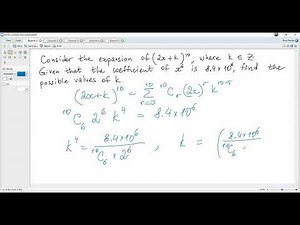 Consider the expansion of (2x+k)¹⁰, where k ∈ Z.
Given that the coefficient of x⁶ is 8.4×10⁶, find the
possible values of k.
(2x+k)¹⁰ = ∑_{r=0}^{10} ¹⁰C_r (2x)^r k^{10-r}
¹⁰C₆ 2⁶ k⁴ = 8.4×10⁶
k⁴ = 8.4×10⁶ / (¹⁰C₆ × 2⁶) , k = (8.4×10⁶ / ¹⁰C₆